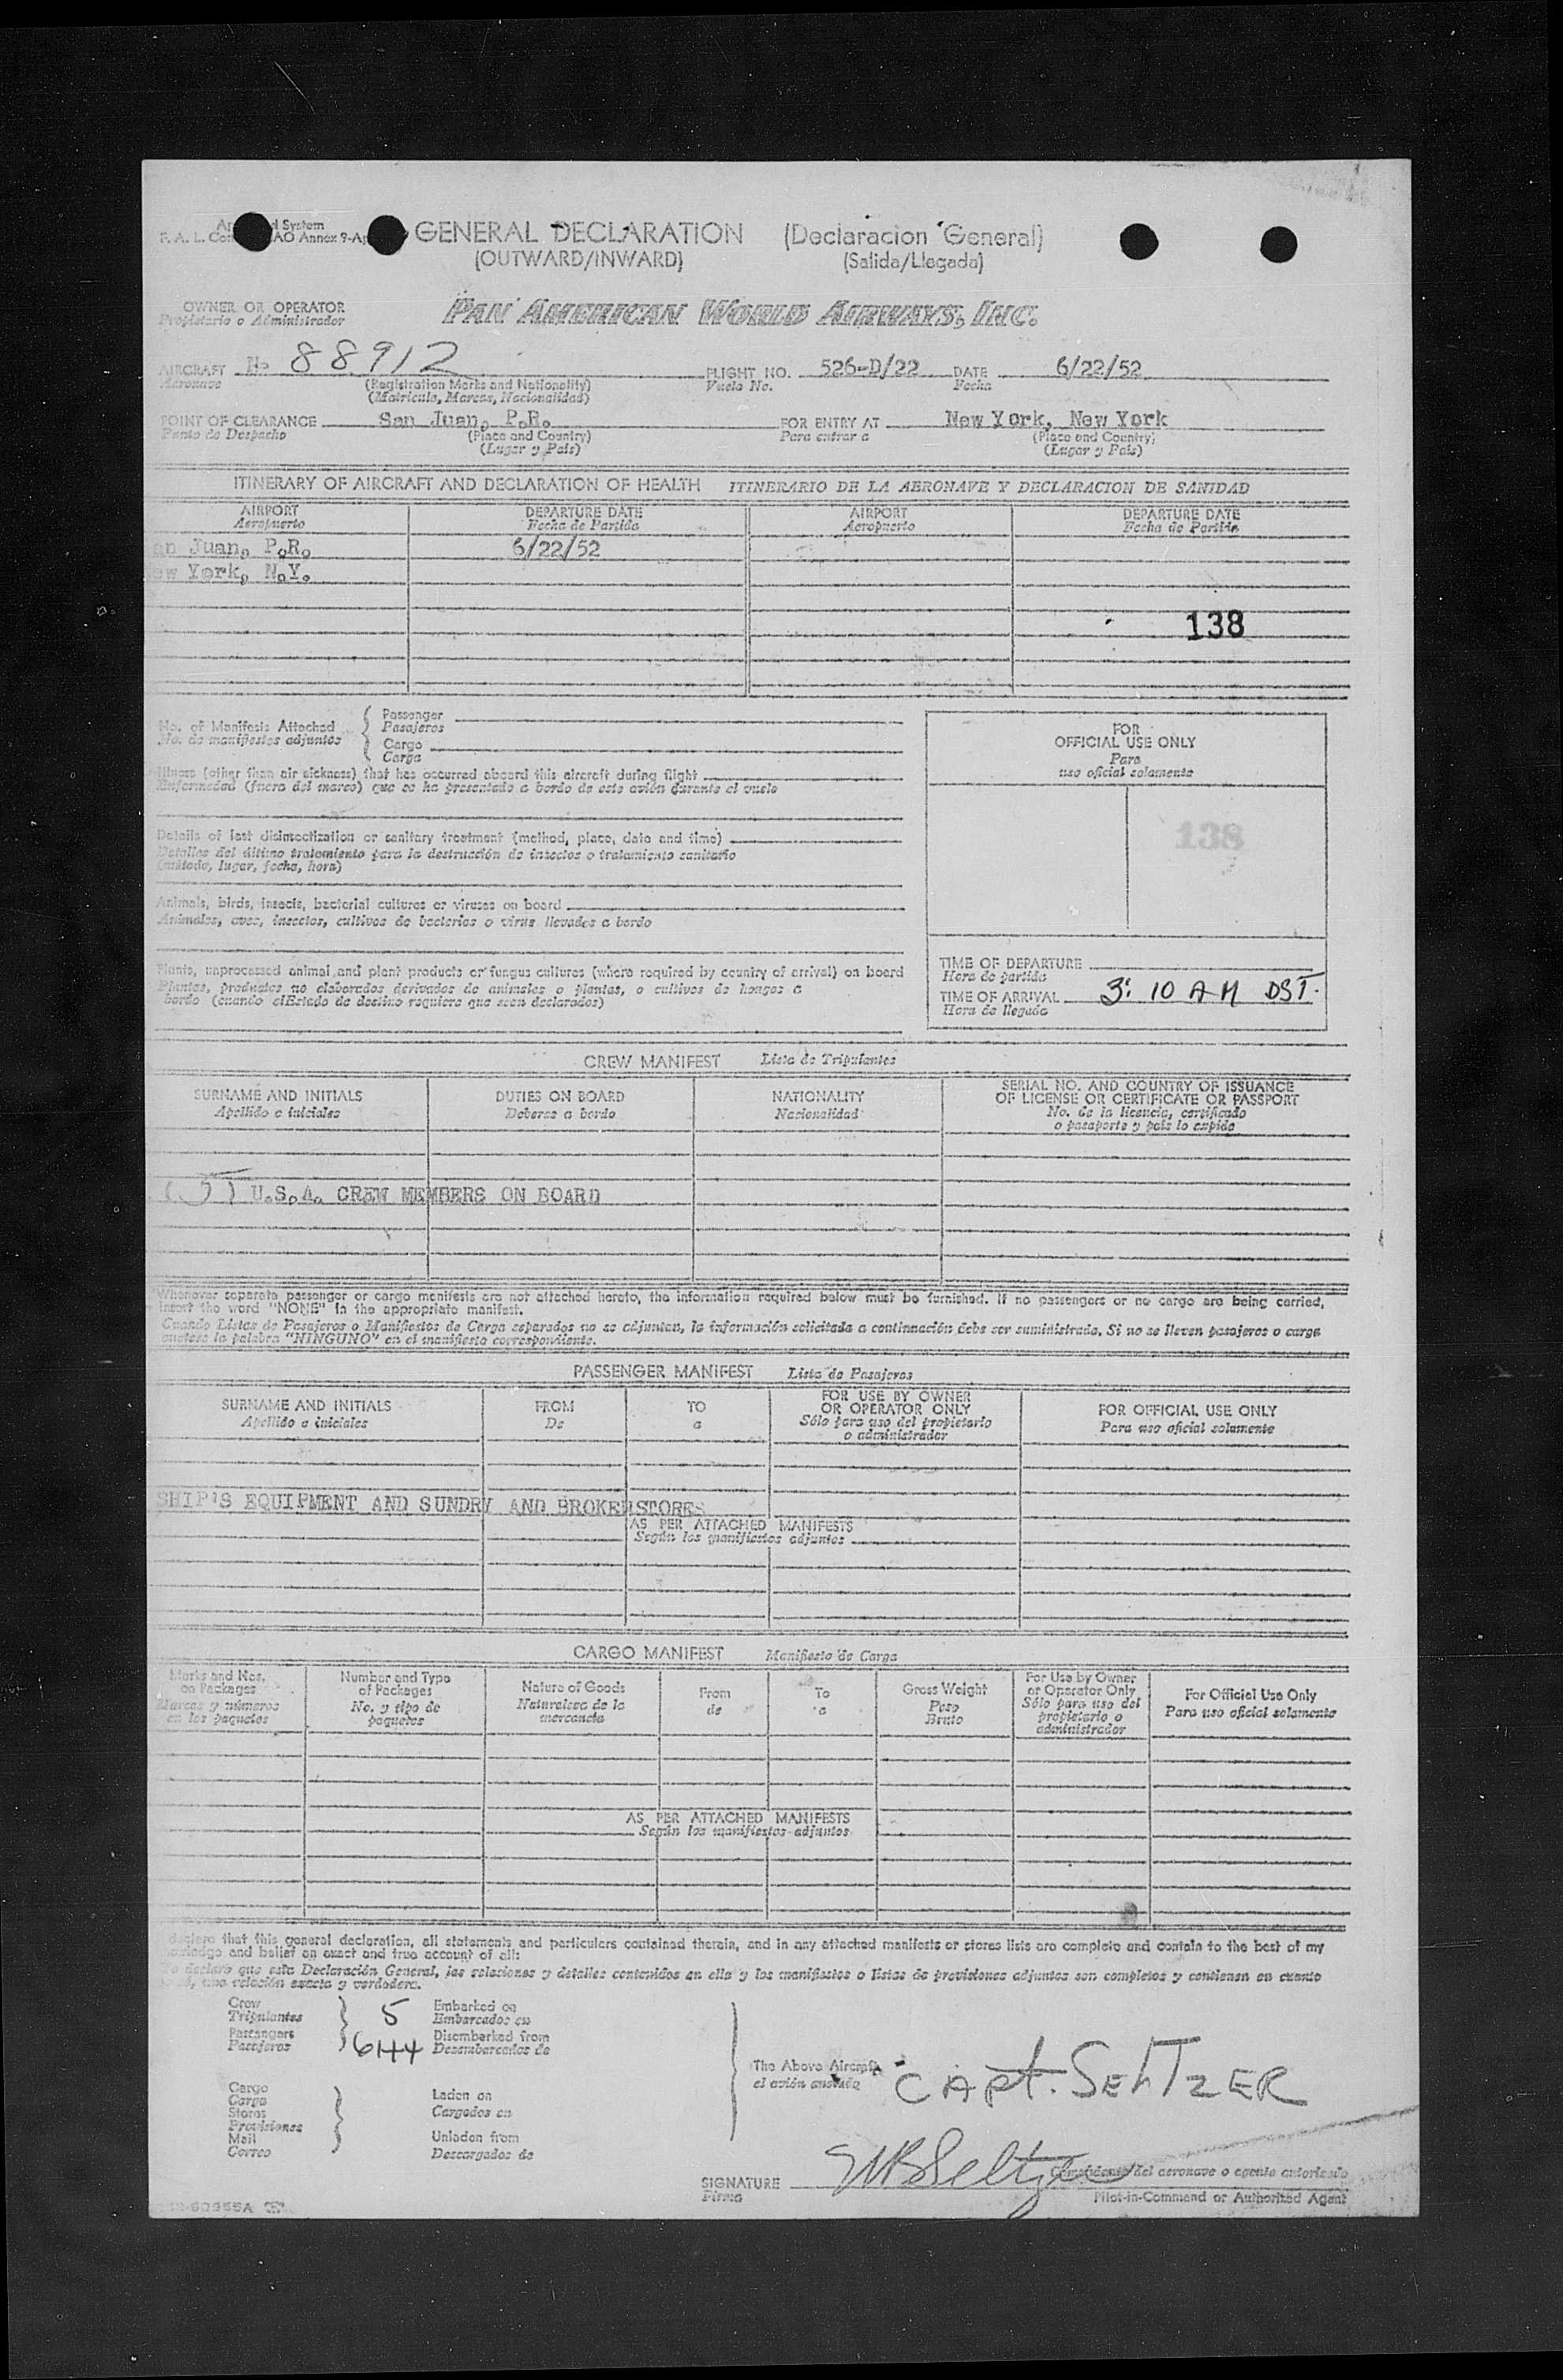 System
F. A. L. AO Annex 9-A
GENERAL DECLARATION (Declaracion General)
(OUTWARD/INWARD) (Salida/Llegada)
OWNER OR OPERATOR
Propietario o Administrador
PAN AMERICAN WORLD AIRWAYS, INC.
AIRCRAFT No 88912 FLIGHT NO. 526-D/22 DATE 6/22/52
Aeronave (Registration Marks and Nationality) Vuelo No. Fecha
(Matricula, Marcas, Nacionalidad)
POINT OF CLEARANCE San Juan, P.R. FOR ENTRY AT New York, New York
Punto de Despacho (Place and Country) Para entrar a (Place and Country)
(Lugar y País) (Lugar y País)
ITINERARY OF AIRCRAFT AND DECLARATION OF HEALTH ITINERARIO DE LA AERONAVE Y DECLARACION DE SANIDAD
AIRPORT DEPARTURE DATE AIRPORT DEPARTURE DATE
Aeropuerto Fecha de Partida Aeropuerto Fecha de Partida
an Juan, P.R. 6/22/52
ew York, N.Y.
138
No. of Manifests Attached
No. de manifiestos adjuntos
Passenger
Pasajeros
Cargo
Carga
Illness (other than air sickness) that has occurred aboard this aircraft during flight
Enfermedad (fuera del mareo) que se ha presentado a bordo de este avión durante el vuelo
Details of last disinsectization or sanitary treatment (method, place, date and time)
Detalles del último tratamiento para la destrucción de insectos o tratamiento sanitario
(método, lugar, fecha, hora)
Animals, birds, insects, bacterial cultures or viruses on board
Animales, aves, insectos, cultivos de bacterias o virus llevados a bordo
Plants, unprocessed animal and plant products or fungus cultures (where required by country of arrival) on board
Plantas, productos no elaborados derivados de animales o plantas, o cultivos de hongos a
bordo (cuando el Estado de destino requiera que sean declarados)
FOR
OFFICIAL USE ONLY
Para
uso oficial solamente
138
TIME OF DEPARTURE
Hora de partida
TIME OF ARRIVAL 3:10 AM DST.
Hora de llegada
CREW MANIFEST Lista de Tripulantes
SURNAME AND INITIALS DUTIES ON BOARD NATIONALITY SERIAL NO. AND COUNTRY OF ISSUANCE
OF LICENSE OR CERTIFICATE OR PASSPORT
Apellido e iniciales Deberes a bordo Nacionalidad No. de la licencia, certificado
o pasaporte y país lo expide
(5) U.S.A. CREW MEMBERS ON BOARD
Whenever separate passenger or cargo manifests are not attached hereto, the information required below must be furnished. If no passengers or no cargo are being carried,
insert the word "NONE" in the appropriate manifest.
Cuando Listas de Pasajeros o Manifiestos de Carga separados no se adjuntan, la información solicitada a continuación debe ser suministrada. Si no se llevan pasajeros o carga
anotese la palabra "NINGUNO" en el manifiesto correspondiente.
PASSENGER MANIFEST Lista de Pasajeros
SURNAME AND INITIALS FROM TO FOR USE BY OWNER
OR OPERATOR ONLY FOR OFFICIAL USE ONLY
Apellido e iniciales De a Sólo para uso del propietario
o administrador Para uso oficial solamente
SHIP'S EQUIPMENT AND SUNDRY AND BROKEN STORES
AS PER ATTACHED MANIFESTS
Según los manifiestos adjuntos
CARGO MANIFEST Manifiesto de Carga
Marks and Nos.
on Packages
Marcas y números
en los paquetes
Number and Type
of Packages
No. y tipo de
paquetes
Nature of Goods
Naturaleza de la
mercancía
From
de
To
a
Gross Weight
Peso
Bruto
For Use by Owner
or Operator Only
Sólo para uso del
propietario o
administrador
For Official Use Only
Para uso oficial solamente
AS PER ATTACHED MANIFESTS
Según los manifiestos adjuntos
declare that this general declaration, all statements and particulars contained therein, and in any attached manifests or stores lists are complete and contain to the best of my
knowledge and belief an exact and true account of all:
declaro que esta Declaración General, las relaciones y detalles contenidos en ella y los manifiestos o listas de provisiones adjuntos son completos y contienen en cuanto
una relación exacta y verdadera.
Crew
Tripulantes 5
Passengers
Pasajeros 6144
Embarked on
Embarcados en
Disembarked from
Desembarcados de
Cargo
Carga
Stores
Provisiones
Mail
Correo
Laden on
Cargados en
Unladen from
Descargados de
The Above Aircraft
el avión
CAPT. SELTZER
SIGNATURE
Firma
WBSeltzer
Comandante del aeronave o agente autorizado
Pilot-in-Command or Authorized Agent